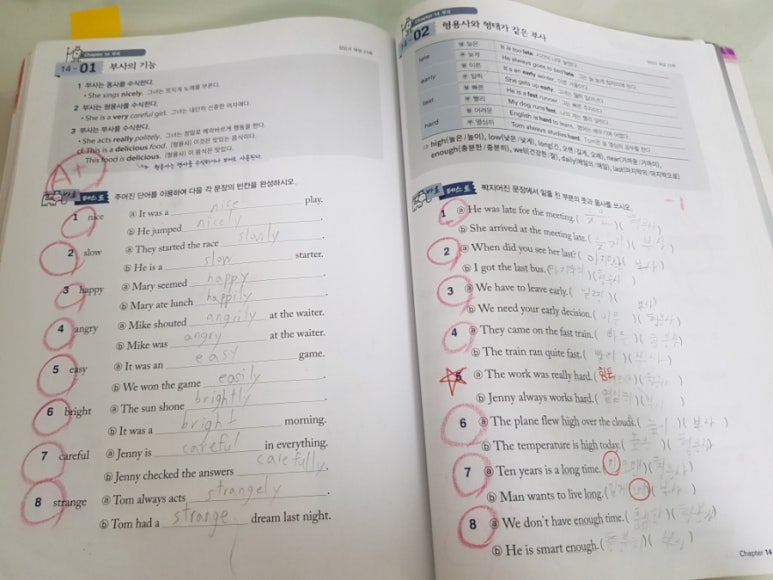 Chapter 14 부사
14-01 부사의 기능
정답과 해설
1 부사는 동사를 수식한다.
• She sings nicely. 그녀는 멋지게 노래를 부른다.
2 부사는 형용사를 수식한다.
• She is a very careful girl. 그녀는 대단히 신중한 여자애다.
3 부사는 부사를 수식한다.
• She acts really politely. 그녀는 정말로 예의바르게 행동을 한다.
cf. This is a delicious food. (형용사) 이것은 맛있는 음식이다.
This food is delicious. (형용사) 이 음식은 맛있다.
A+
바로 테스트 주어진 단어를 이용하여 다음 각 문장의 빈칸을 완성하시오.
1 nice ⓐ It was a nice play.
ⓑ He jumped nicely.
2 slow ⓐ They started the race slowly.
ⓑ He is a slow starter.
3 happy ⓐ Mary seemed happy.
ⓑ Mary ate lunch happily.
4 angry ⓐ Mike shouted angrily at the waiter.
ⓑ Mike was angry at the waiter.
5 easy ⓐ It was an easy game.
ⓑ We won the game easily.
6 bright ⓐ The sun shone brightly.
ⓑ It was a bright morning.
7 careful ⓐ Jenny is careful in everything.
ⓑ Jenny checked the answers carefully.
8 strange ⓐ Tom always acts strangely.
ⓑ Tom had a strange dream last night.
Chapter 14 부사
14-02 형용사와 형태가 같은 부사
late 형 늦은 It is too late. 시간이 너무 늦었다.
부 늦게 He always goes to bed late. 그는 늘 늦게 잠자리에 든다.
early 형 이른 It's an early winter. 이른 겨울이다.
부 일찍 She gets up early. 그녀는 일찍 일어난다.
fast 형 빠른 He is a fast runner. 그는 빠른 주자이다.
부 빨리 My dog runs fast. 나의 개는 빨리 달린다.
hard 형 어려운 English is hard to learn. 영어는 배우기에 어렵다.
부 열심히 Tom always studies hard. Tom은 늘 열심히 공부를 한다.
⇒ high(높은/높이), low(낮은/낮게), long(긴, 오랜/길게, 오래), near(가까운/가까이),
enough(충분한/충분히), well(건강한/잘), daily(매일의/매일), last(마지막의/마지막으로)
-1
바로 테스트 짝지어진 문장에서 밑줄 친 부분의 뜻과 품사를 쓰시오.
1 ⓐ He was late for the meeting. ( 늦은 )( 형용사 )
ⓑ She arrived at the meeting late. ( 늦게 )( 부사 )
2 ⓐ When did you see her last? ( )( 부사 )
ⓑ I got the last bus. ( 마지막의 )( 형용사 )
3 ⓐ We have to leave early. ( 일찍 )( 부사 )
ⓑ We need your early decision. ( 이른 )( 형용사 )
4 ⓐ They came on the fast train. ( 빠른 )( 형용사 )
ⓑ The train ran quite fast. ( 빨리 )( 부사 )
5 ⓐ The work was really hard. ( 힘든 )( )
ⓑ Jenny always works hard. ( 열심히 )( 부사 )
6 ⓐ The plane flew high over the clouds. ( 높이 )( 부사 )
ⓑ The temperature is high today. ( 높은 )( 형용사 )
7 ⓐ Ten years is a long time. ( )( 형용사 )
ⓑ Man wants to live long. ( )( 부사 )
8 ⓐ We don't have enough time. ( 충분한 )( 형용사 )
ⓑ He is smart enough. ( 충분히 )( 부사 )
Chapter 14